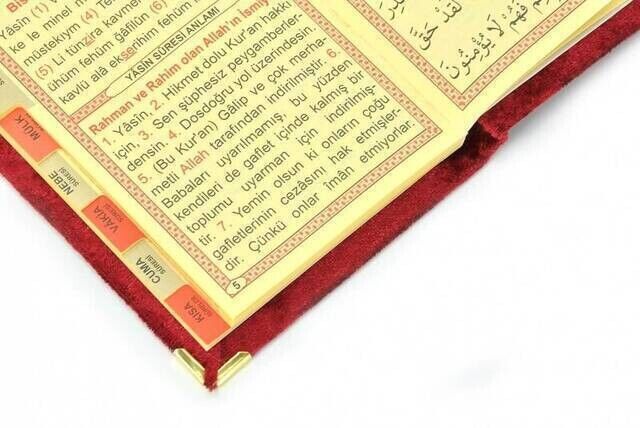 Yâsîn (1)
ke le minel
müstekıym (4)
(5) Li tünzira kavmen
ühüm fehüm gâfilûn (6)
kavlü alâ ekserihim fehüm
YÂSİN SÛRESİ ANLAMI
Rahman ve Rahim olan Allah'ın İsmiy
1. Yâsîn, 2. Hikmet dolu Kur'an hakkı
için, 3. Sen şüphesiz peygamberler-
densin. 4. Dosdoğru yol üzerindesin.
5. (Bu Kur'an) Gâlip ve çok merha-
metli Allah tarafından indirilmiştir. 6.
Babaları uyarılmamış, bu yüzden
kendileri de gaflet içinde kalmış bir
toplumu uyarman için indirilmiş-
tir. 7. Yemin olsun ki onların çoğu
gafletlerinin cezâsını hak etmişler-
dir. Çünkü onlar îmân etmiyorlar.
5
لَقَدْ حَقَّ
فَهُمْ لَا يُؤْمِنُونَ
MÜLK
NEBE
SÛRESİ
VÂKIA
SÛRESİ
CUMA
SÛRESİ
KISA
SÛRELER